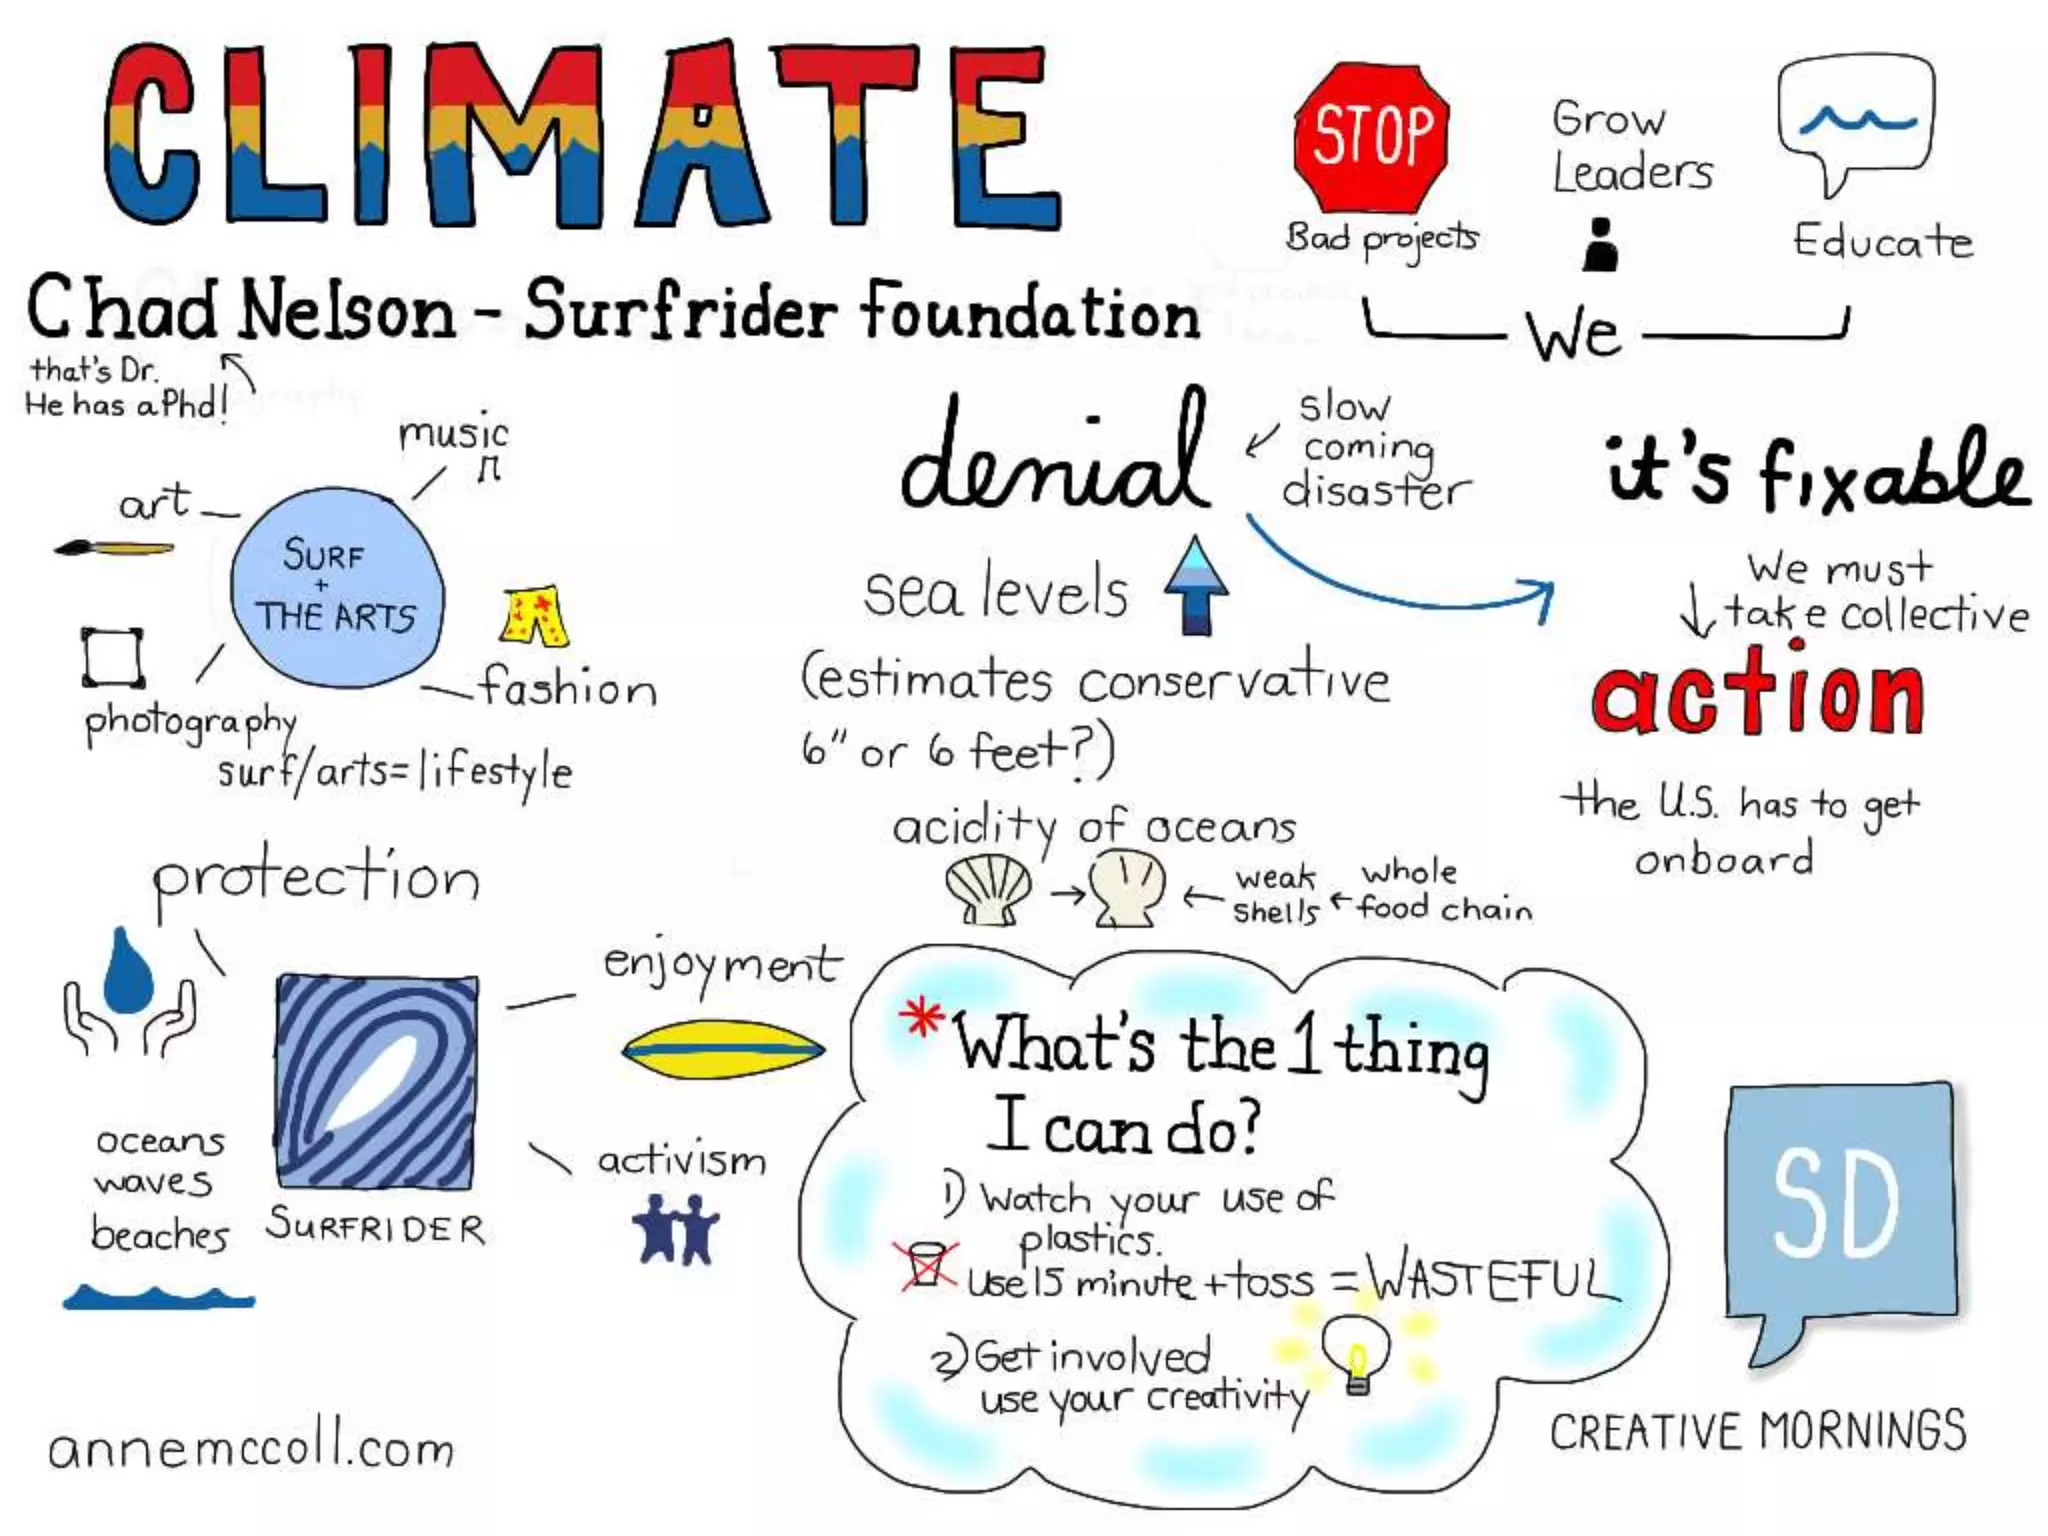 CLIMATE
Chad Nelson - Surfrider Foundation
that's Dr.
He has a Phd!
STOP
Bad projects
Grow
Leaders
Educate
We
music
art
SURF
+
THE ARTS
fashion
photography
surf/arts=lifestyle
denial
slow
coming
disaster
sea levels
(estimates conservative
6" or 6 feet?)
acidity of oceans
weak
shells
whole
food chain
it's fixable
We must
take collective
action
the U.S. has to get
onboard
protection
enjoyment
activism
oceans
waves
beaches
SURFRIDER
*What's the 1 thing
I can do?
1) Watch your use of
plastics.
Use 15 minute + toss = WASTEFUL
2) Get involved
use your creativity
SD
CREATIVE MORNINGS
annemccoll.com